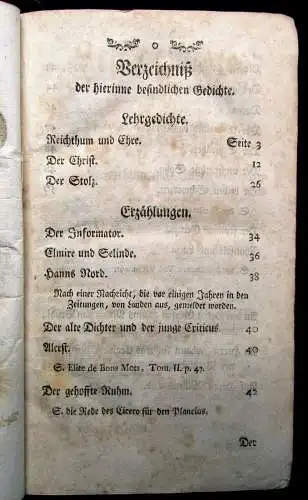 0
Verzeichniß
der hierinne befindlichen Gedichte.
Lehrgedichte.
Reichthum und Ehre. Seite 3
Der Christ. 12
Der Stolz. 26
Erzählungen.
Der Informator. 34
Elmire und Selinde. 36
Hanns Nord. 38
Nach einer Nachricht, die vor einigen Jahren in den
Zeitungen, von Londen aus, gemeldet worden.
Der alte Dichter und der junge Criticus. 40
Alcest. 40
S. Elite de Bons Mots, Tom. II. p. 47.
Der gehoffte Ruhm. 42
S. die Rede des Cicero für den Plancius.
Der